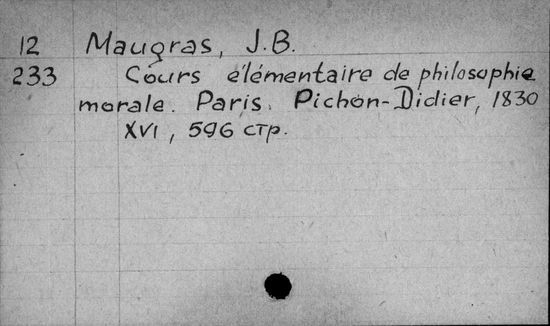 12 Maugras, J.B.
233 Cours élémentaire de philosophie
morale. Paris. Pichon-Didier, 1830
XVI, 596 стр.